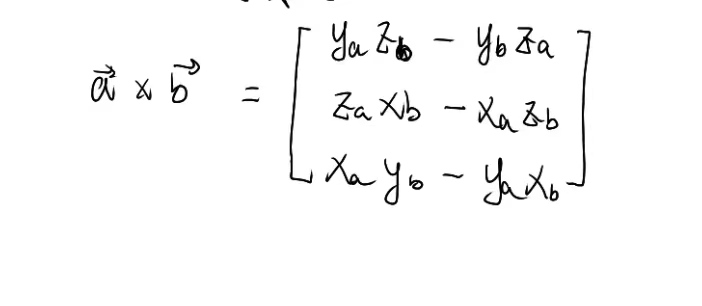 a⃗ × b⃗ = [ yₐ z_b − y_b zₐ
zₐ x_b − xₐ z_b
xₐ y_b − yₐ x_b ]